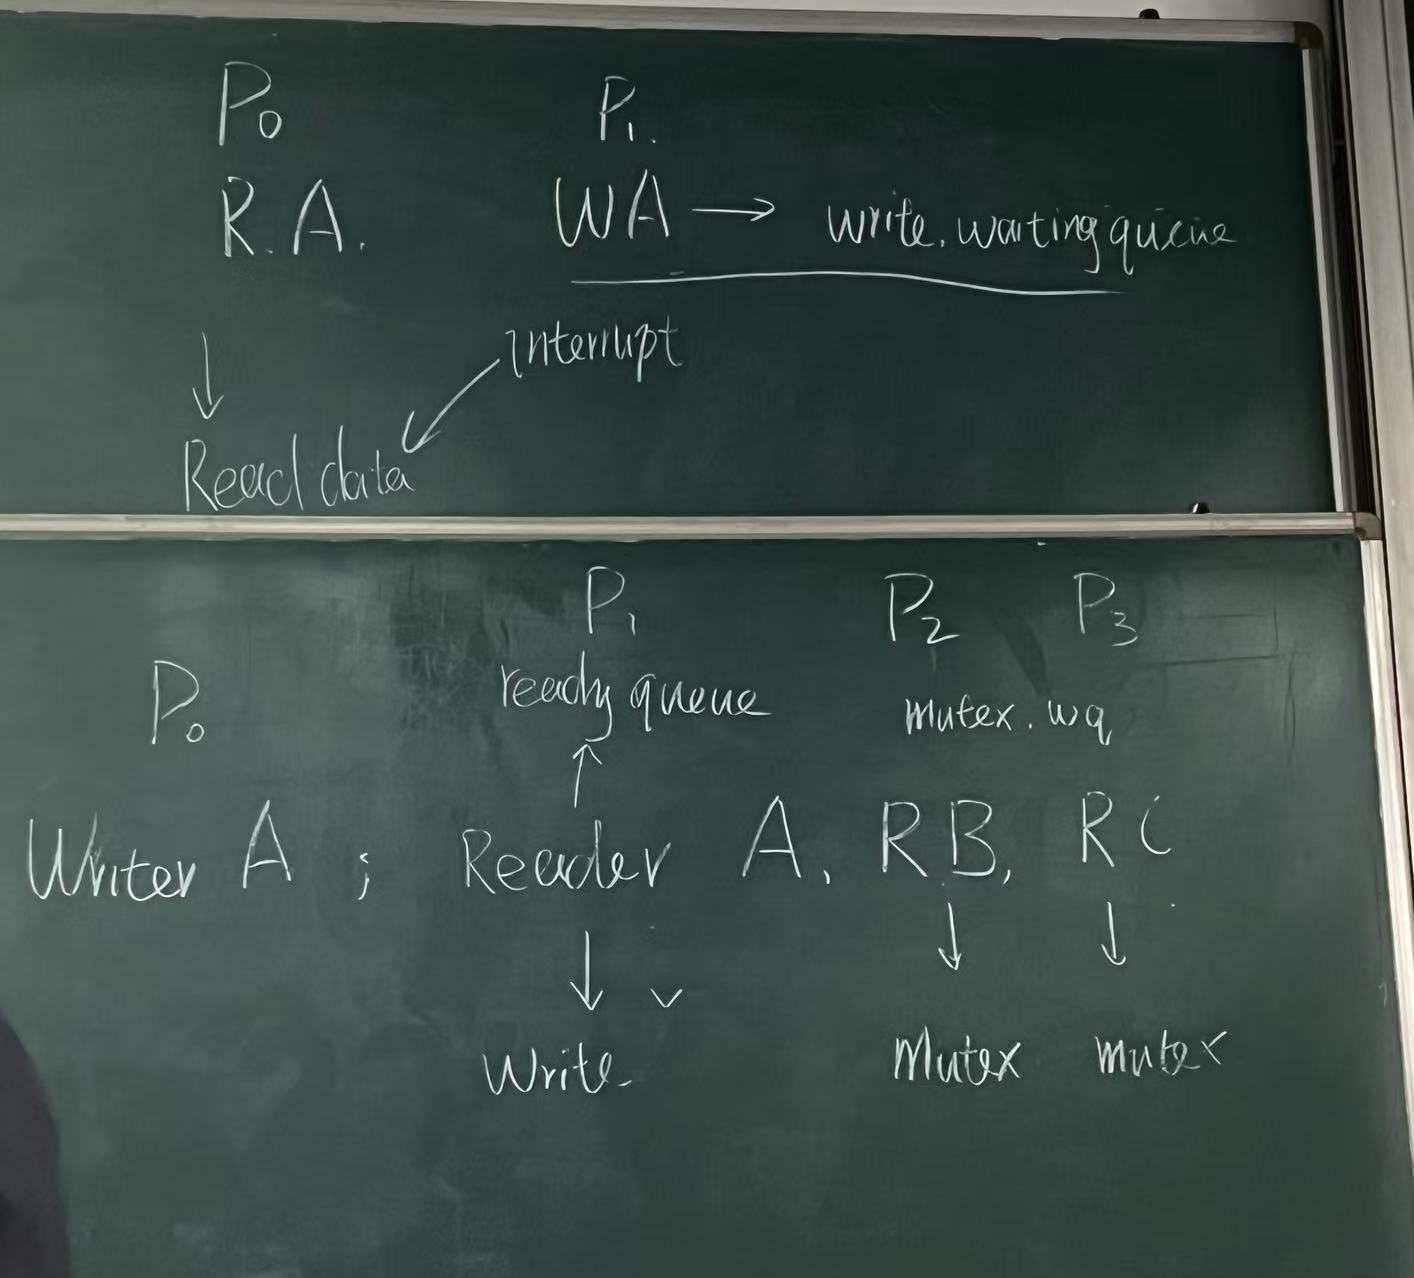 P0 P1.
R.A. WA → write. waiting queue
interrupt
Read data
P1 P2 P3
ready queue mutex. wq
P0
Writer A ; Reader A, RB, RC
Write Mutex mutex